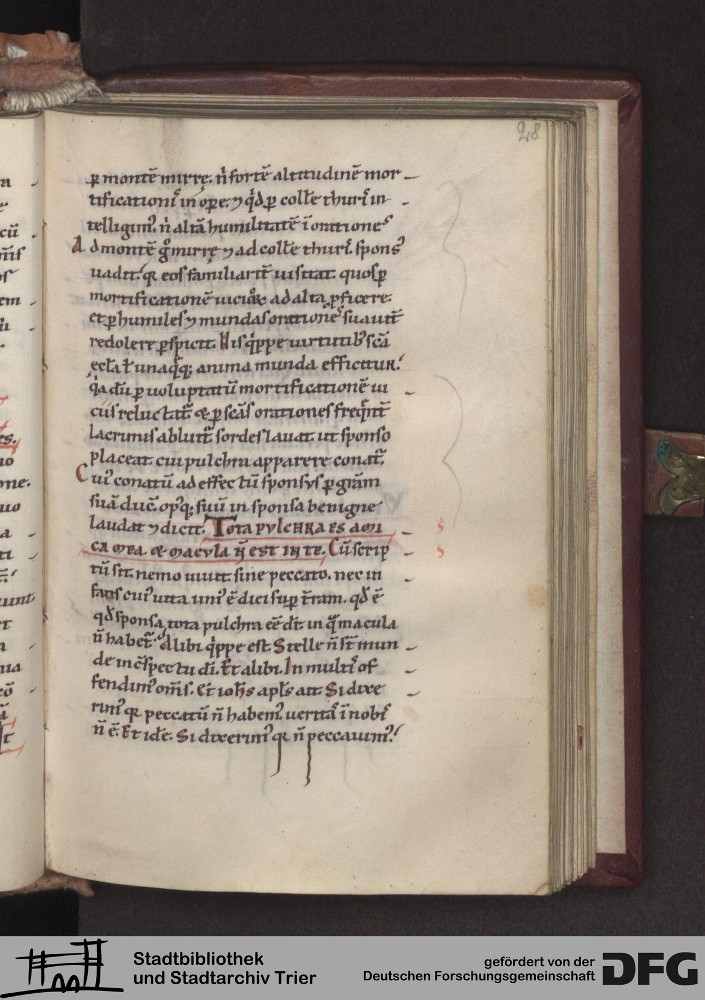 28
ꝑ montē mirrę. n̄ fortē altitudinē mor
tificationiˢ in oꝑe. ⁊ qđ ꝑ collē thuriˢ in
telligimꝰ. n̄ altā humilitatē ī orationeˢ
Ad montē gͦ mirrę ⁊ ad collē thuriˢ sponsꝰ
uadit. qꝛ eos familiarit̄ uisitat. quos ꝑ
mortificationē uicioꝝ ad alta ꝓficere.
et ꝑ humiles ⁊ mundas orationeˢ suauit̄
redolere ꝑspicit. His q̇ppe uirtutibꝰ scā
eccl̄a ł unaq̄q; anima munda efficitur.
q̇a dū ꝑ uoluptatū mortificationē ui
ciis reluctat̄ & ꝑ scās orationes freq̄nt̄
lacrimis abluit̄ sordes lauat. ut sponso
placeat. cui pulchra apparere conat̄.
Cuiꝰ conatū ad effectū sponsus ꝑ gr̄am
suā duc̄. opꝰq; suū in sponsa benigne
laudat ⁊ dicit. Tota pulchra es ami
ca mea. & macula n̄ est in te. Cū scrip
tū sit. nemo uiuit sine peccato. nec in
fans cuiꝰ uita uniꝰ ē diei suꝑ t̄ram. qđ ē
qđ sponsa tota pulchra eē dr̄. in q̄ macula
n̄ habet̄. Alibi q̇ppe est. Stelle n̄ st̄ mun
de in c̄spectu dī. Et alibi. In multiˢ of
fendimꝰ om̄s. Et ioh̄s apl̄s ait. Si dixe
rimꝰ qꝛ peccatū n̄ habemꝰ. ueritaˢ ī nobiˢ
n̄ ē. Et idē. Si dixerimꝰ qꝛ n̄ peccauimꝰ.
Stadtbibliothek
und Stadtarchiv Trier
gefördert von der
Deutschen Forschungsgemeinschaft
DFG